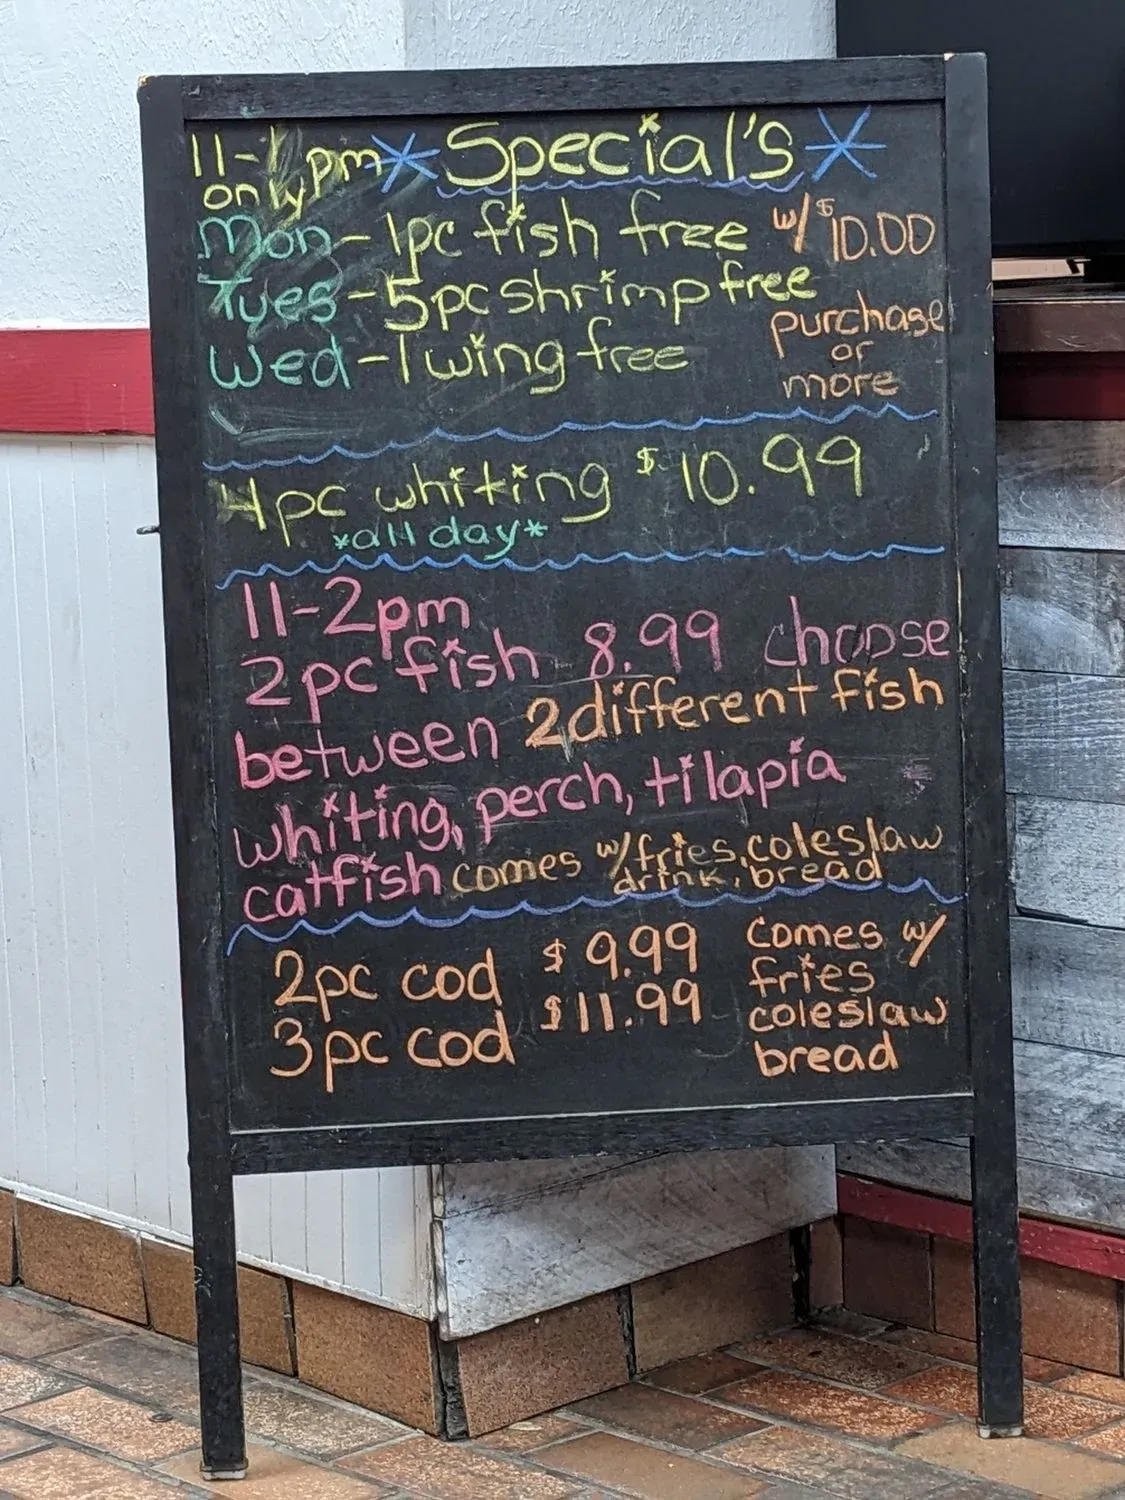 11-1pm *Special's*
only
Mon-1pc fish free w/ $10.00
Tues-5pc shrimp free purchase
or
Wed-1 wing free more
4pc whiting $10.99
*all day*
11-2pm
2pc fish 8.99 choose
between 2 different fish
whiting, perch, tilapia
catfish comes w/fries, coleslaw
drink, bread
2pc cod $9.99 comes w/
fries
3pc cod $11.99 coleslaw
bread